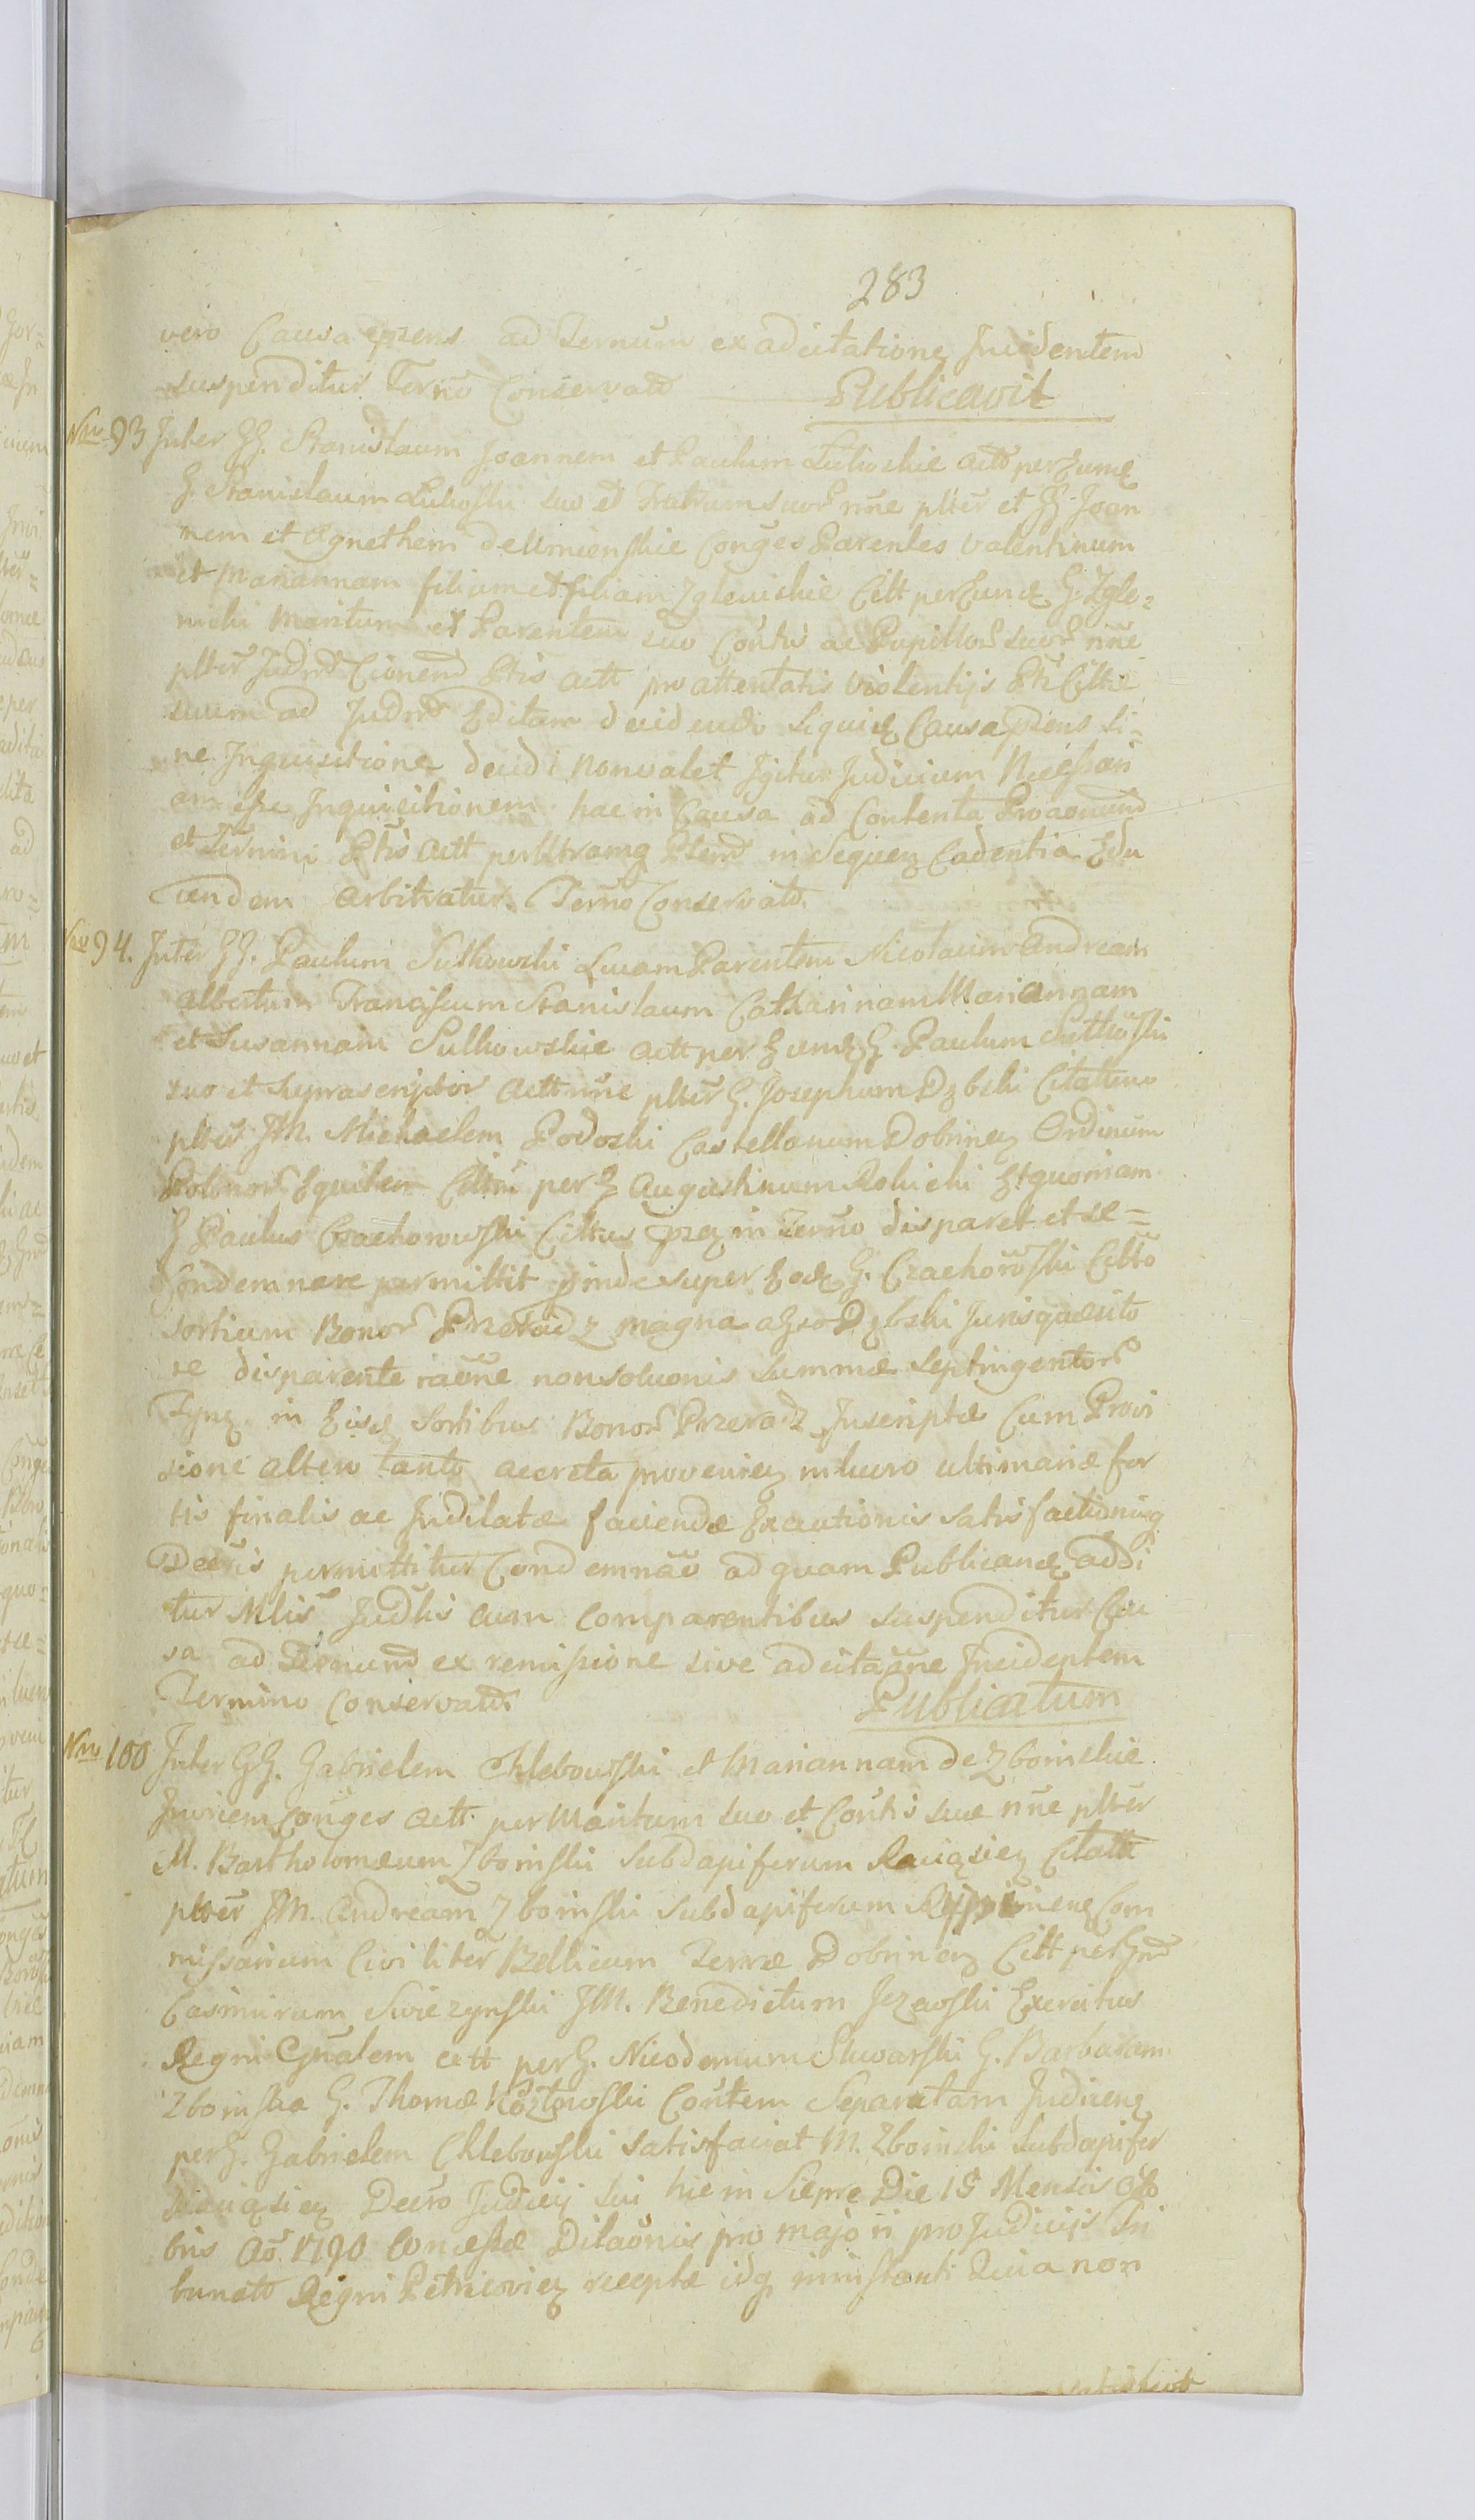 283
vero Causa pzens ad Ternum ex adcitatione Incidentem
suspenditur Terno Conservato Publicavit
Nro 93 Inter GG. Stanislaum Joannem et Paulum Lukoskie actt per eumd
G. Stanislaum Lukoski suo et Fratrum suor nne plter et GG. Joan
nem et Agnethem de Umienskie Conges Parentes Valentinum
et Mariannam filium et filiam Zglenickie Citt per eund G. Zgle-
nicki Maritum et Parentem suo Contis ac Pupillor suor nne
plter Judm Cionem Ptis actt pro attentatis Violentijs Pti Citte
suum ad Judm Editam decidendo Siquid Causa pzens si-
ne Inquisitione decidi non valet Igitur Judicium Necessari
am esse Inquisitionem hac in Causa ad Contenta Proaonum
et Termini Ptis actt per Utramq Ptem in Sequen Cadentia Edu
cendem arbitratur. Terno Conservato.
Nro 94. Inter GG. Paulum Sulkowski Lucam Parentem Nicolaum Andream
Albertum Franciscum Stanislaum Catharinam Mariannam
et Susannam Sulkowskie actt per eumd G. Paulum
suo et suprascriptor actt nne plter G. Josephum Dzbski Citatum
plter JM. Michaelem Podoski Castellanum Dobrinen Ordinum
Polonor Equitem Cittm per G Augustinum Rokicki Et quoniam
G Paulus Czachorowski Cittus pzen in Terno disparet et se-
Condemnare permittit pinde super eod G. Czachorowski Citto
sortium Bonor Przeradz magna a G so Dzbski Jurisquaesito
re disparente raone non soluonis summae septingentor
Tynf. in Eisd Sortibus Bonor Przeradz Inscriptae Cum Provi
sione altero tanto accreta provenien in lucro ultimariae for
tis finalis ac Indilatae faciendae Executionis satisfactionisq
Decris permittitur Condemnao ad quam Publicand addi
tur Mlis Judlis cum Comparentibus suspenditur Cau
sa ad Ternum ex remissione sive adcitaone Incidentem
Termino Conservato. Publicatum
Nro 100 Inter GG. Gabrielem Chlebowski et Mariannam de Zboinskie
Invicem Conges actt. per Maritum suo et Contis suae nne plter
M. Bartholomaeum Zboinski Subdapiferum Raciązien Citatt
plter JM. Andream Zboinski Subdapiferum Rippinen Com
missarium Civiliter Bellicum Terrae Dobrinen Citt per Gnd
Casimirum Swiezynski JM. Benedictum Jezewski Exercitus
Regni Gnalem citt per G. Nicodemum Skwarski G. Barbaram
Zboinska G. Thomae Kozłowski Contem Separatam Judicen
per G. Gabrielem Chlebowski satisfaciat M. Zboinski Subdapifer
Raciązien Decro Judicij sui hic in Sierpc Die 18 Mensis Octo
bris Ao 1790 Concessae Dilaonis pro majori pro Judicijs Tri
bunatt Regni Petricovien receptae idq ministanti Quia non